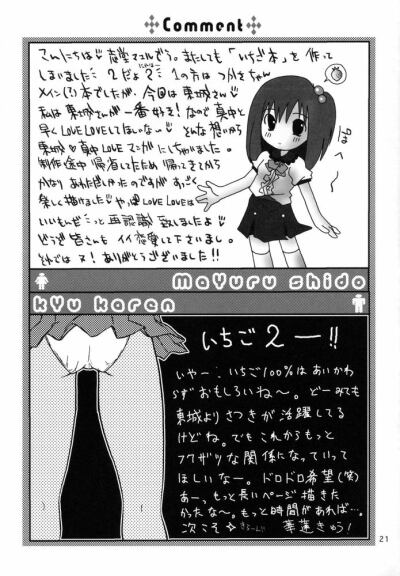 Comment
こんにちは♡志堂マユルでう。またしても「いちご本」を作って
しまいました 2だよ2 1の方はつかさちゃん
メイン(?)本でしたが、今回は東城さん♡
私は東城さんが一番好き!なので真中と
早くLOVE LOVEしてほしいな〜♡そんな想いから
東城♡真中LOVEマンガにしちゃいました。
制作途中帰省してたため帰ってきてから
かなりあわただしかったのですが すごく
楽しく描けました♡やっぱLOVE LOVEは
いいもんだ と再認識致しましたよ♡
どうぞ皆さんも イイ恋愛して下さいまし。
それでは ありがとうございました!!
Mayuru shido
kyu karen
いちご2ー!!
いやー、いちご100%はあいかわ
らずおもしろいね〜。どーみても
東城よりさつきが活躍してる
けどね。でもこれからもっと
フクザツな関係になっていって
ほしいなー。ドロドロ希望(笑)
あー、もっと長いページ描きた
かったな〜。もっと時間があれば…。
次こそ☆ きらーん 華蓮きゅう!
21